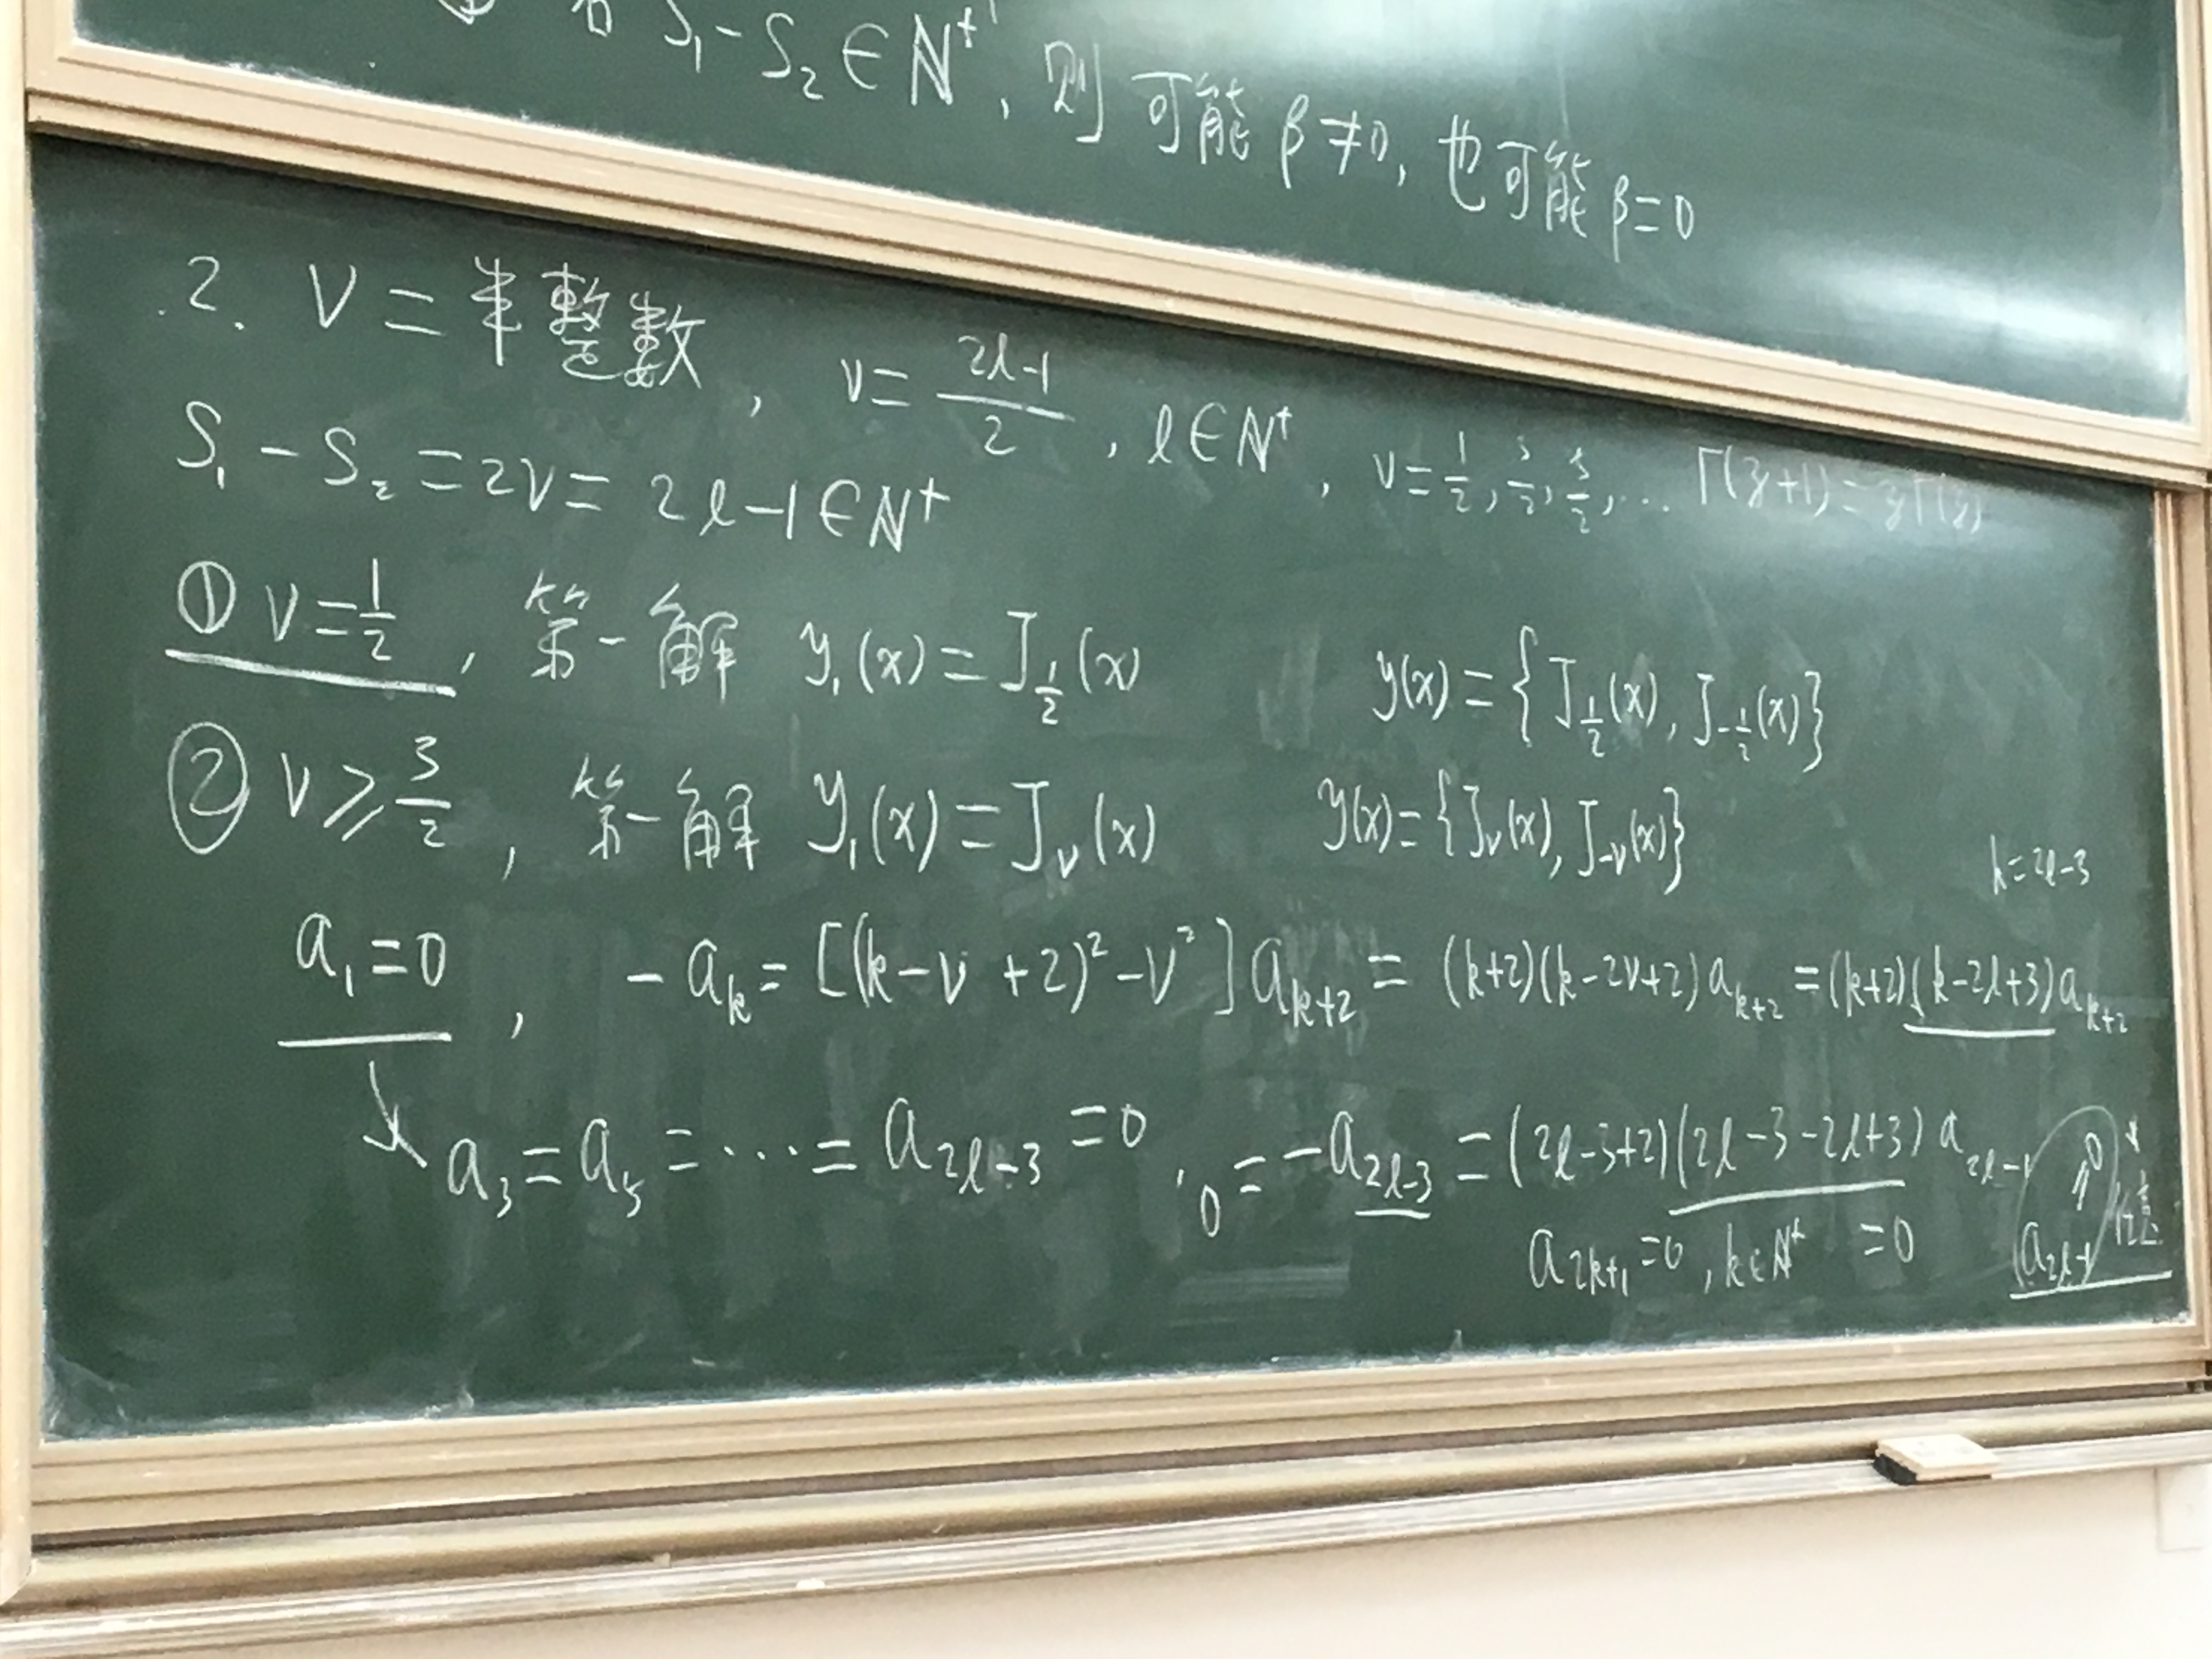 若 S₁-S₂∈N⁺, 则可能β≠0, 也可能β=0
2. ν=半整数, ν=(2l-1)/2, l∈N⁺, ν=1/2, 3/2, 5/2, … Γ(z+1)=zΓ(z)
S₁-S₂=2ν=2l-1∈N⁺
① ν=1/2, 第一解 y₁(x)=J_{1/2}(x) y(x)={J_{1/2}(x), J_{-1/2}(x)}
② ν≥3/2, 第一解 y₁(x)=J_ν(x) y(x)={J_ν(x), J_{-ν}(x)}
k=2l-3
a₁=0, -a_k=[(k-ν+2)²-ν²]a_{k+2}=(k+2)(k-2ν+2)a_{k+2}=(k+2)(k-2l+3)a_{k+2}
↘ a₃=a₅=⋯=a_{2l-3}=0, 0=-a_{2l-3}=(2l-3+2)(2l-3-2l+3)a_{2l-1} 0
a_{2k+1}=0, k∈N⁺ =0 a_{2l-1} 任意